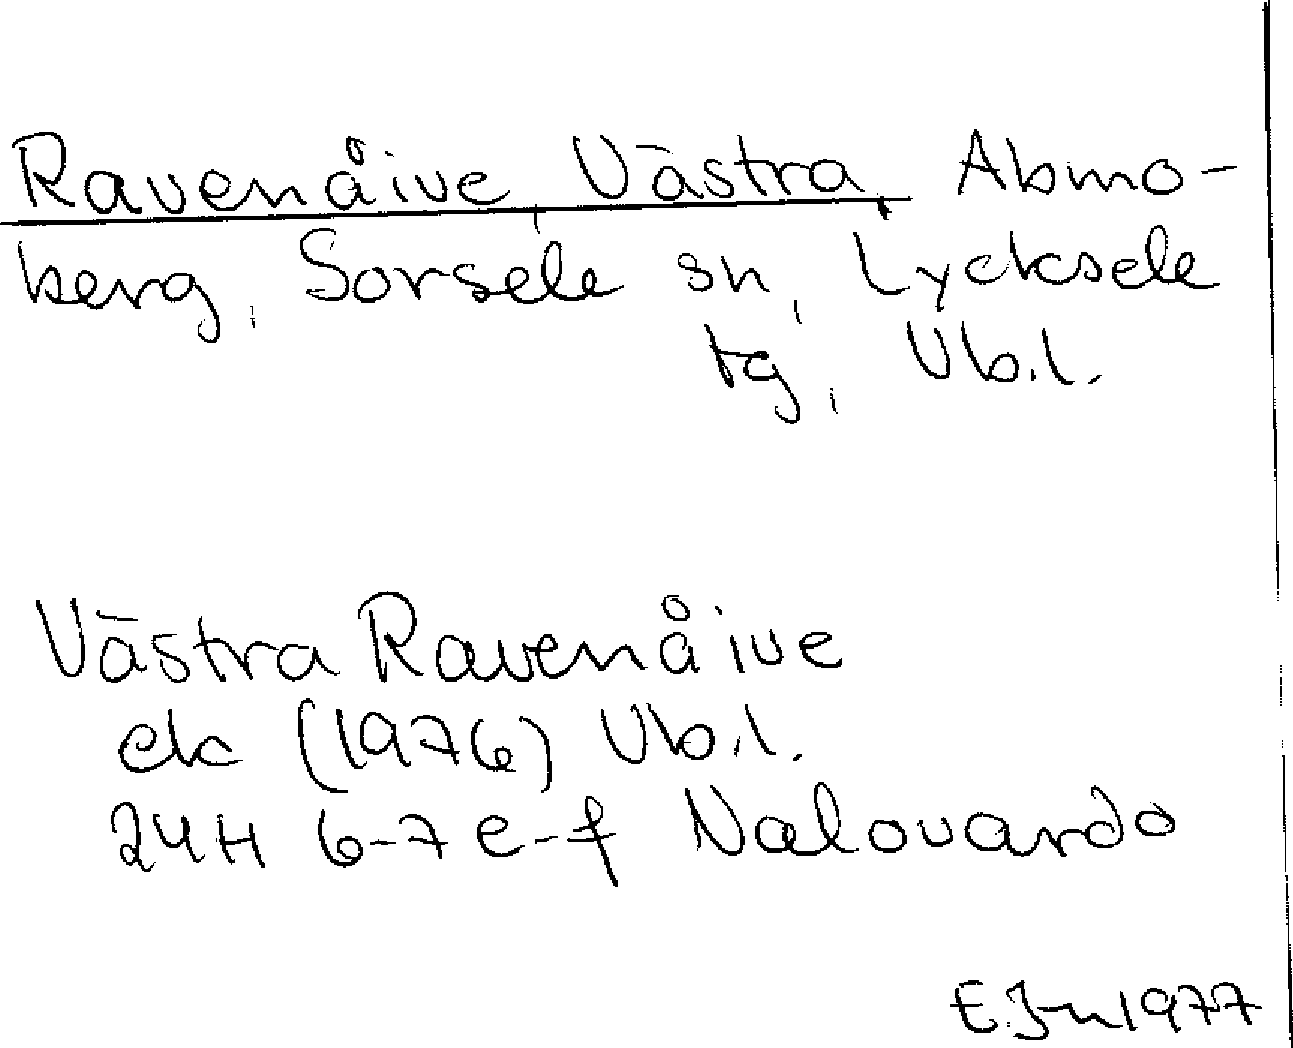 Ravenåive, Västra, Abmo-
berg, Sorsele sn, Lycksele
tg, Vb.l.
Västra Ravenåive
ek (1976) Vb.l.
24H 6-7 e-f Nalovardo
E.Jn 1977